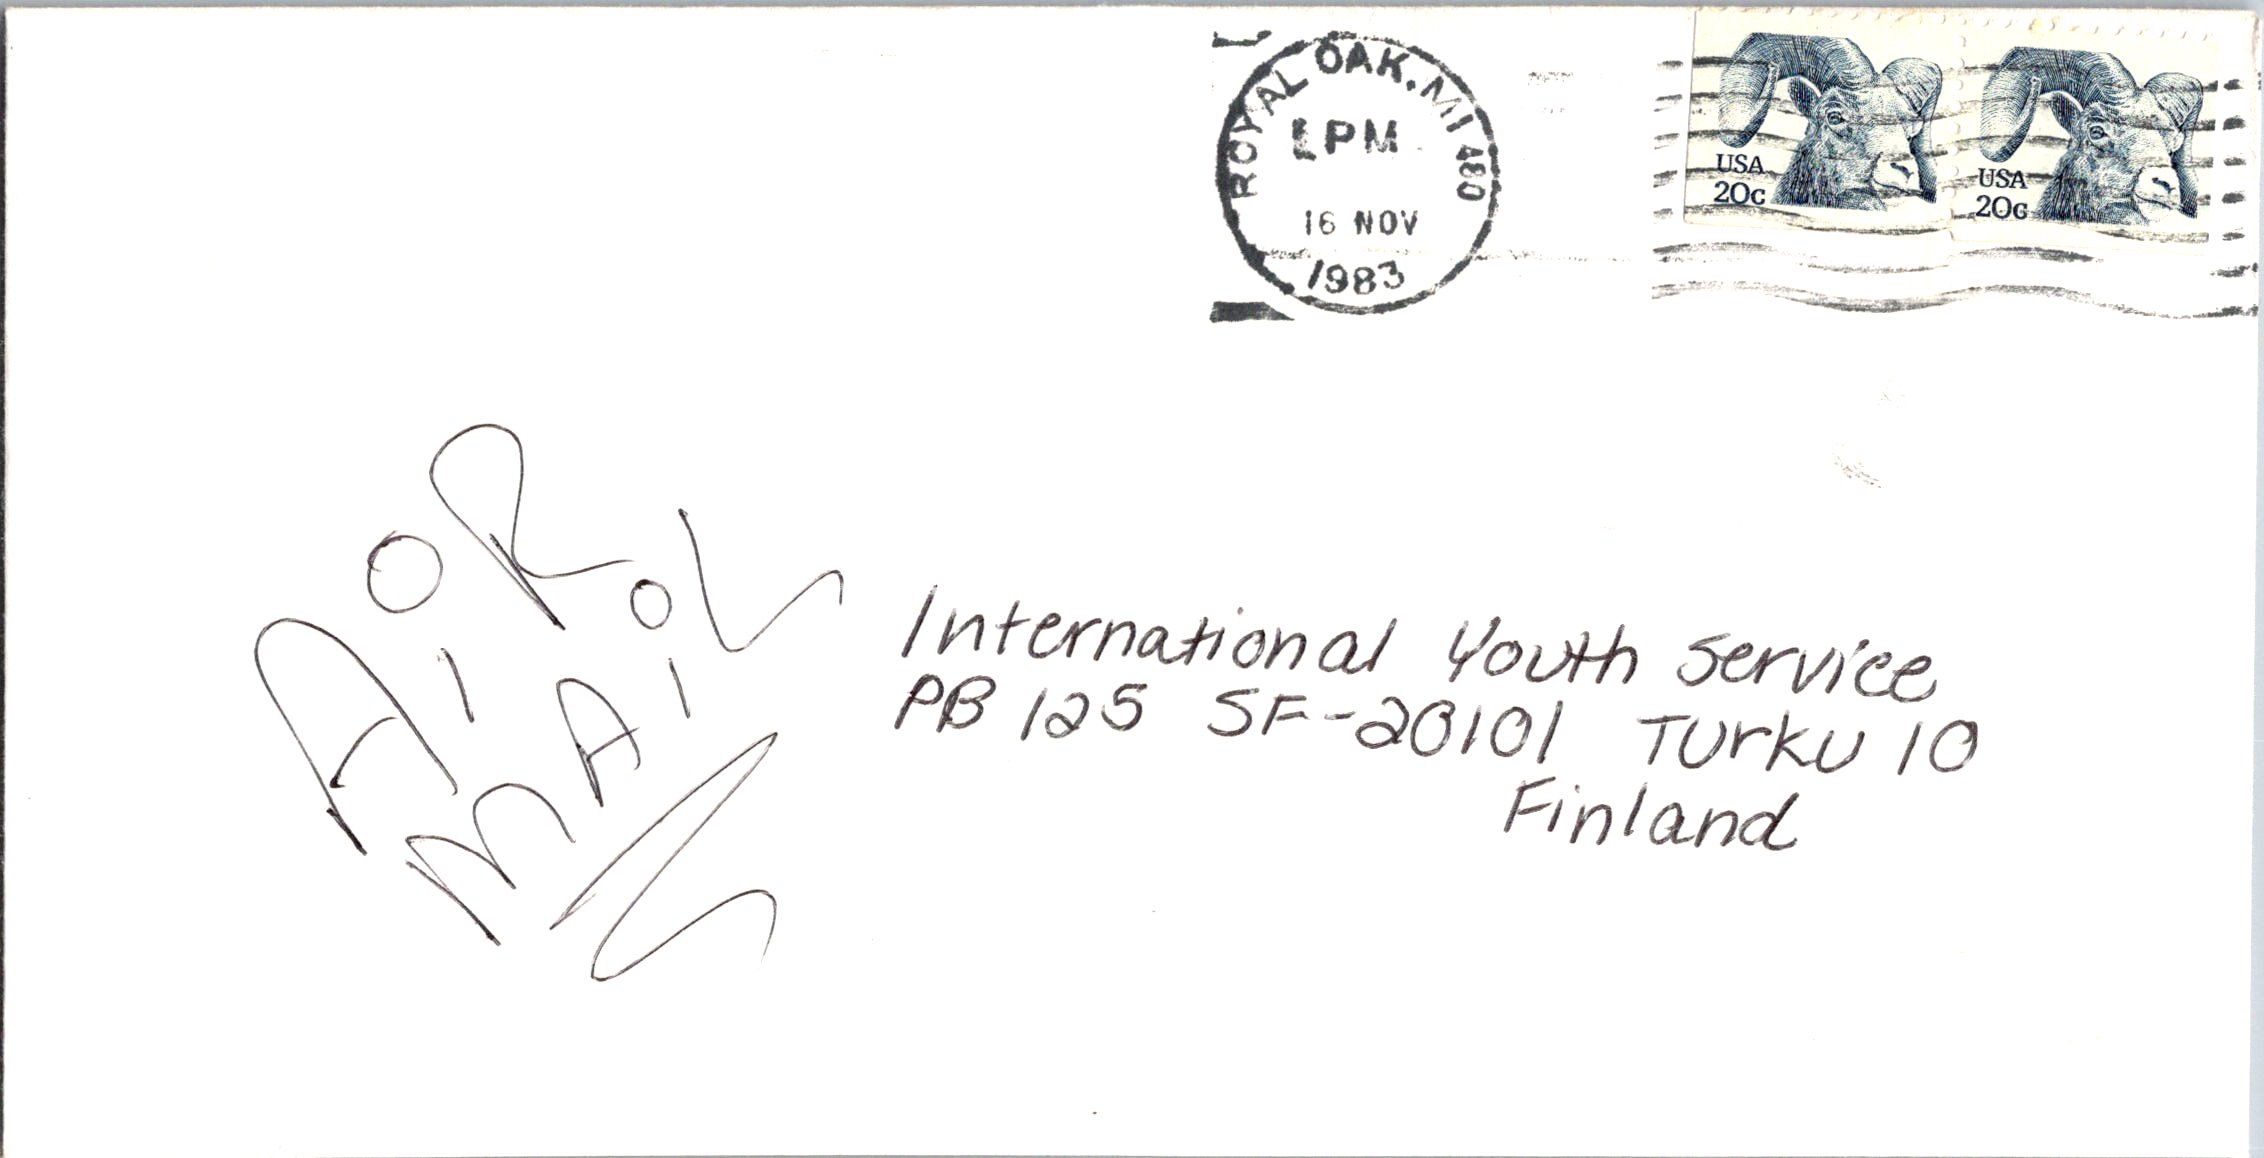 ROYAL OAK, MI 480
PM
16 NOV
1983
USA
20c
USA
20c
AIR
MAIL
International Youth Service
PB 125 SF-20101 Turku 10
Finland